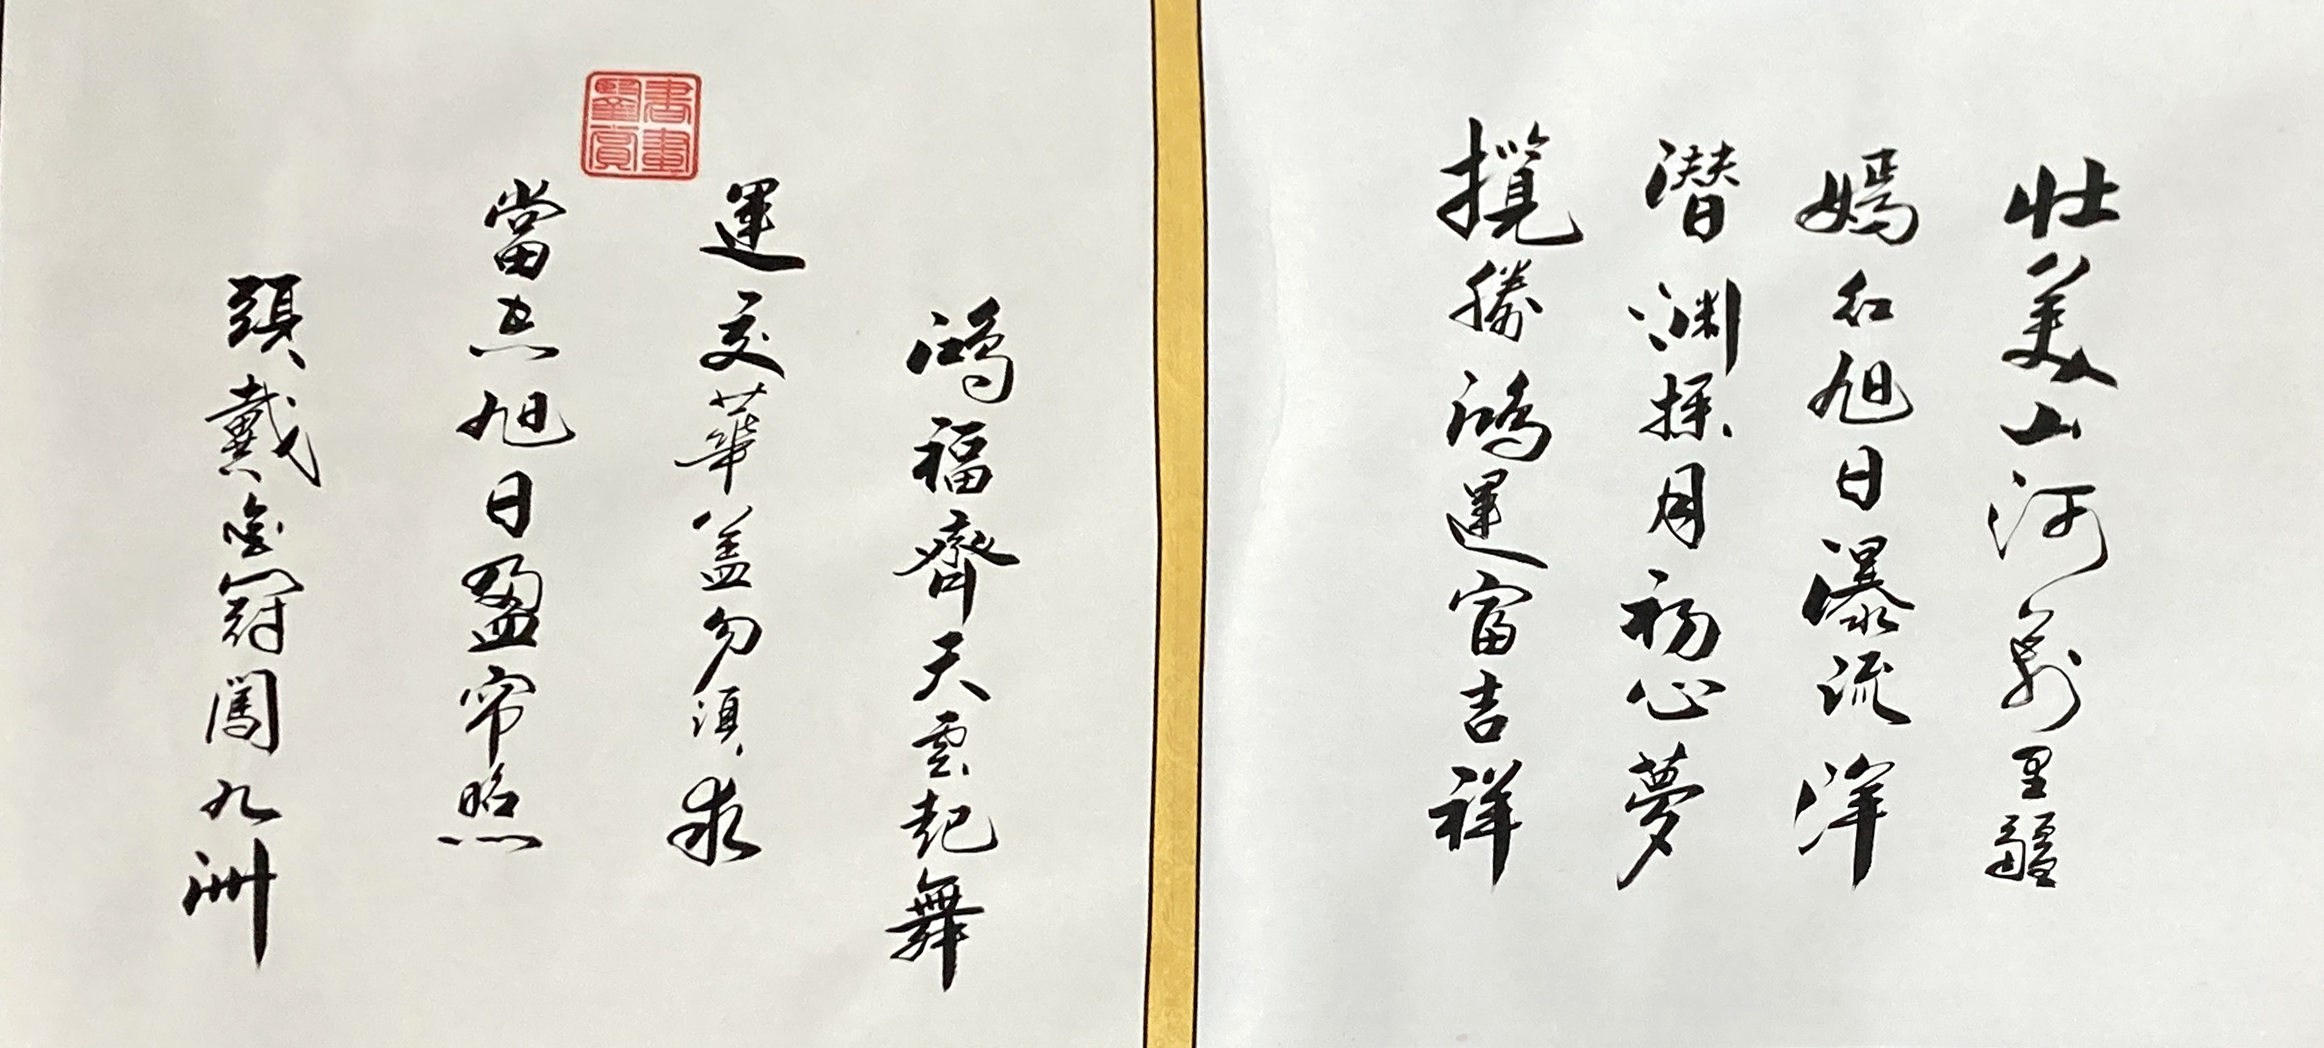 壯美山河萬里疆
嫣紅旭日瀑流洋
潛淵探月初心夢
攬勝鴻運富吉祥
鴻福齊天雲起舞
運交華蓋勿須求
當空旭日盈帘照
頭戴金冠闖九洲
書畫
鑒賞